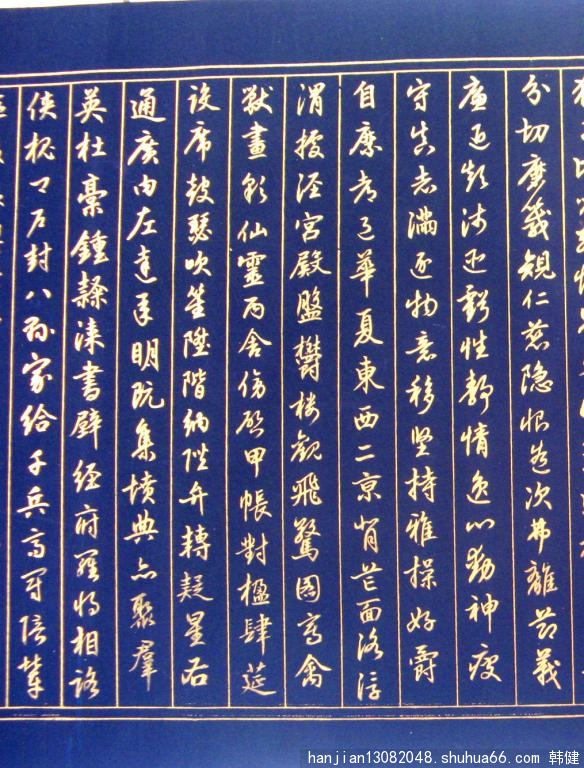 分切磨箴規仁慈隐恻造次弗離节義
廉退顛沛匪虧性静情逸心動神疲
守真志滿逐物意移坚持雅操好爵
自縻都邑華夏東西二京背芒面洛浮
渭據泾宮殿盤欝楼觀飛驚圖寫禽
獸畫彩仙靈丙舍傍啟甲帳對楹肆筵
设席鼓瑟吹笙陞階納陛弁轉疑星右
通廣内左達承明既集墳典亦聚羣
英杜稾鍾隸漆書壁经府羅将相路
侠槐卿户封八縣家給千兵高冠陪辇
hanjian13082048.shuhua66.com 韩健